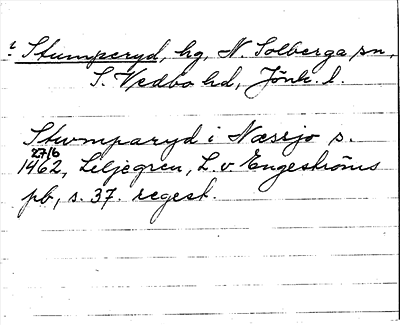 t Stumperyd, hg, N. Solberga sn,
S. Vedbo hd, Jönk. l.
Stumparyd i Næssjo s.
27/6
1462, Leljegren, L. v Engeströms
pb, s. 37. regest.